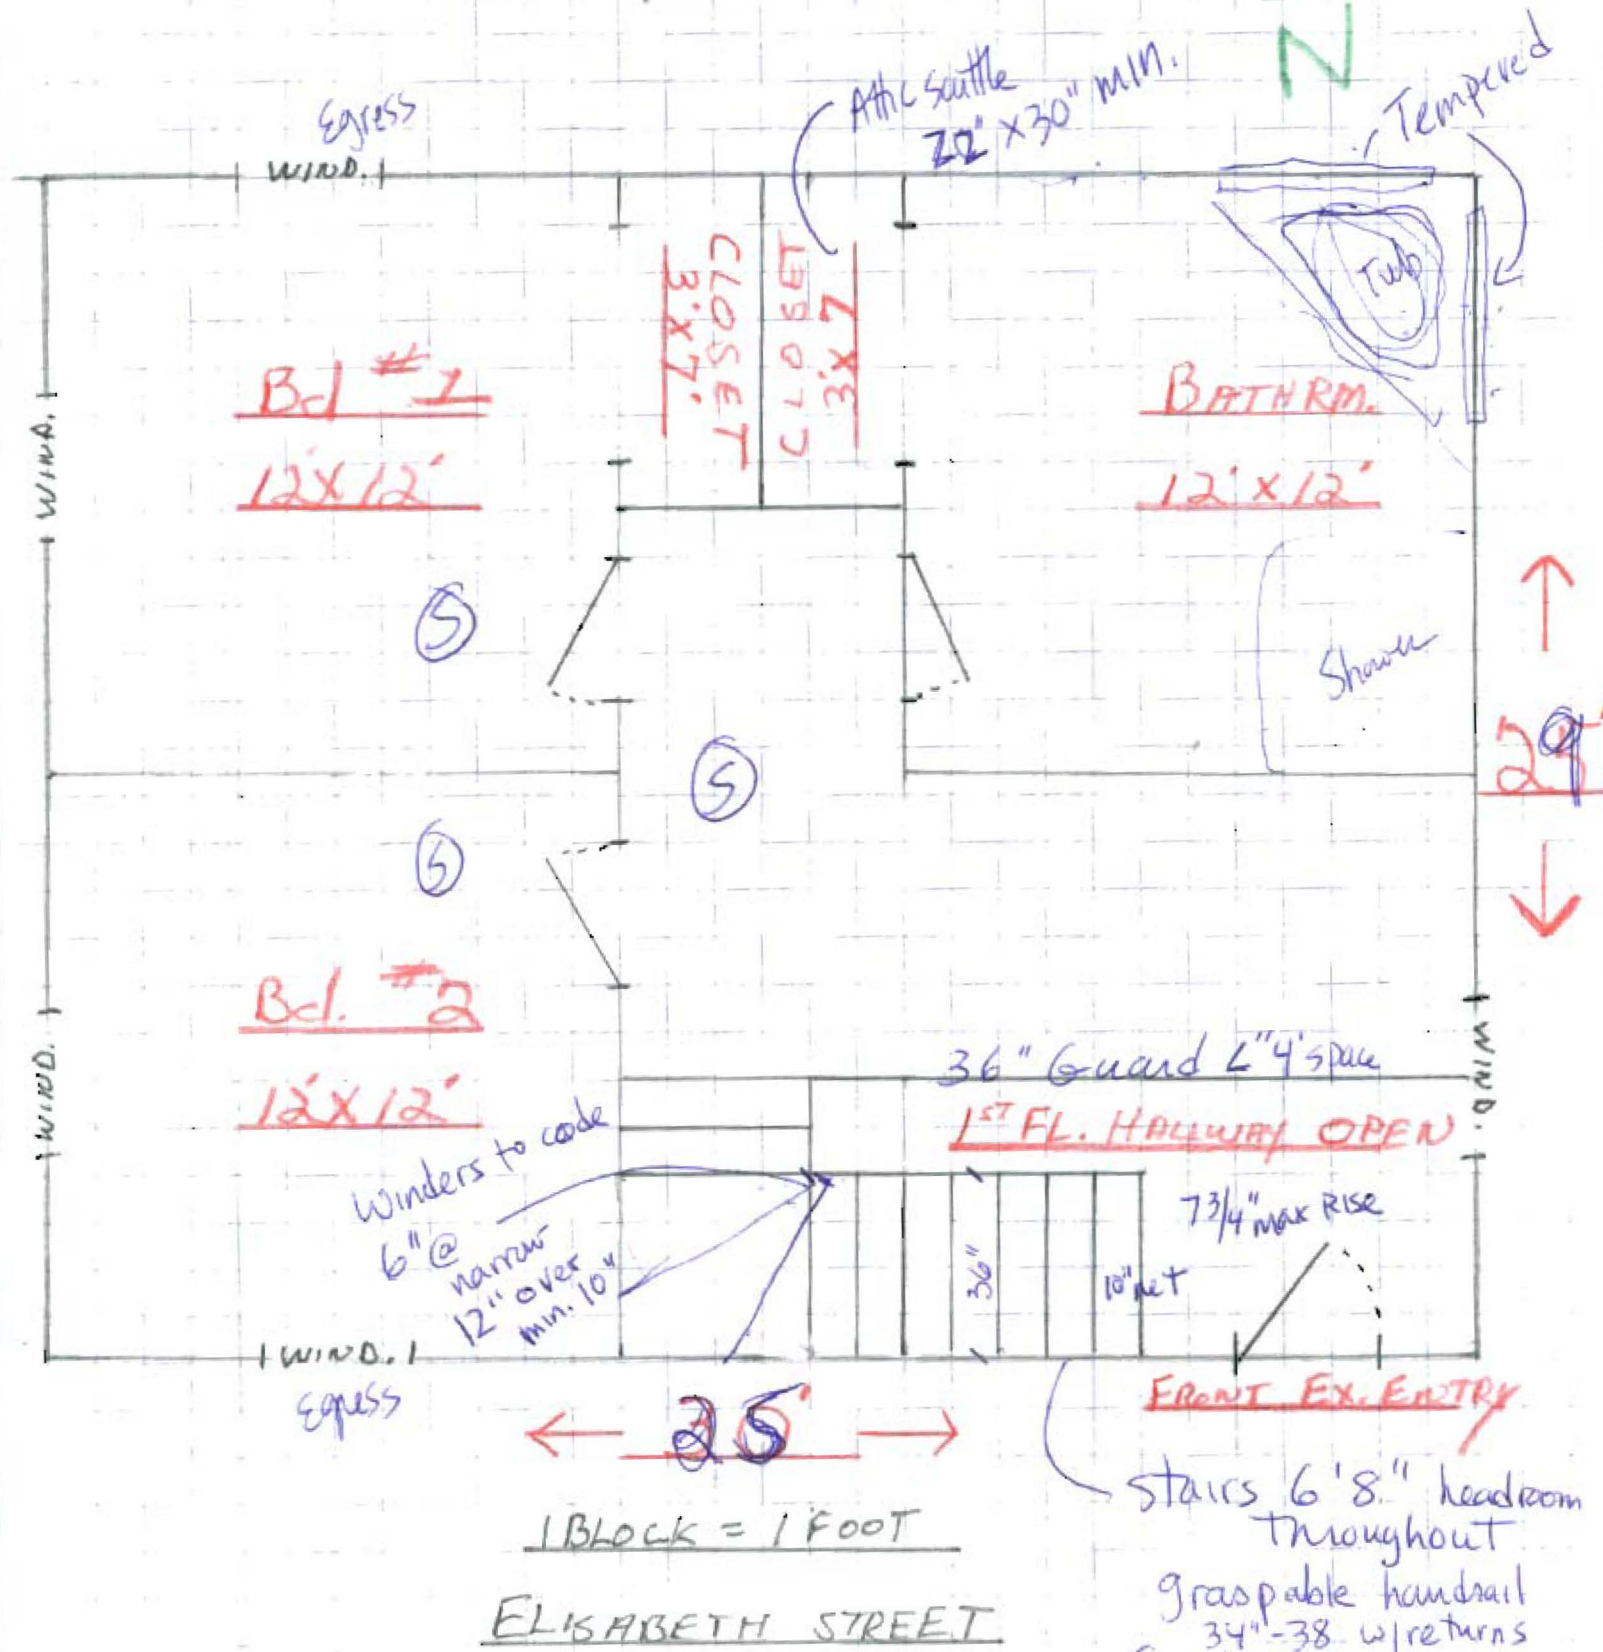 N
Egress
Attic Scuttle
22" x 30" MIN.
Tempered
WIND.
Tub
CLOSET
3' x 7'
CLOSET
3' x 7
Bd #1
12' x 12'
BATHRM.
12' x 12'
WIND.
S
Shower
S
29'
S
Bd. #2
12' x 12'
WIND.
WIND.
36" Guard < "4' space
1ST FL. HALLWAY OPEN
Winders to code
6" @
narrow
12" over
min. 10"
7 3/4" max RISE
36"
10" net
WIND.
Egress
FRONT EX. ENTRY
25'
Stairs 6'8" headroom
Throughout
graspable handrail
34"-38 w/returns
1 BLOCK = 1 FOOT
ELISABETH STREET